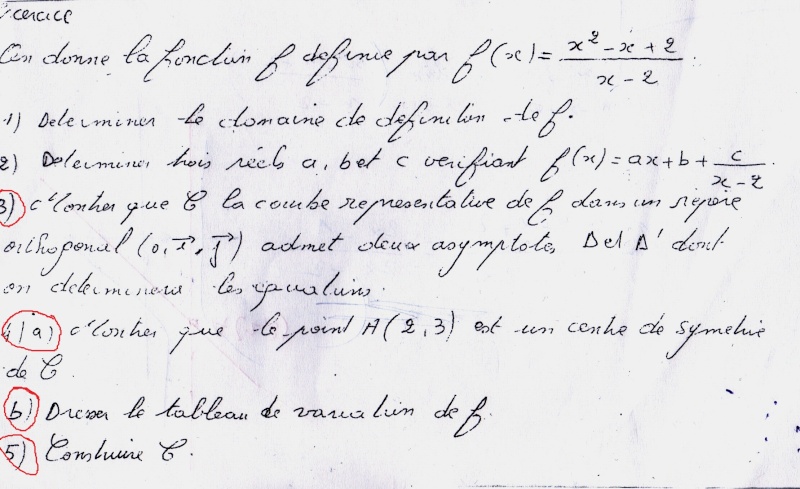 Exercice
On donne la fonction f definie par f(x) = x² - x + 2 / x - 2.
1) Determiner le domaine de definition de f.
2) Determiner trois réels a, b et c verifiant f(x) = ax + b + c / x - 2.
3) Montrer que C la courbe representative de f dans un repère
orthogonal (o, i, j) admet deux asymptotes Δ et Δ' dont
on determinera les equations.
4) a) Montrer que le point A(2,3) est un centre de symetrie
de C.
b) Dresser le tableau de variation de f.
5) Construire C.